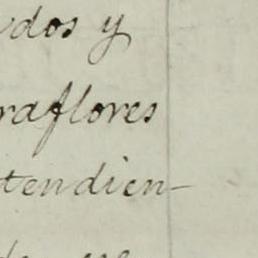 dos y
raflores
tendien-